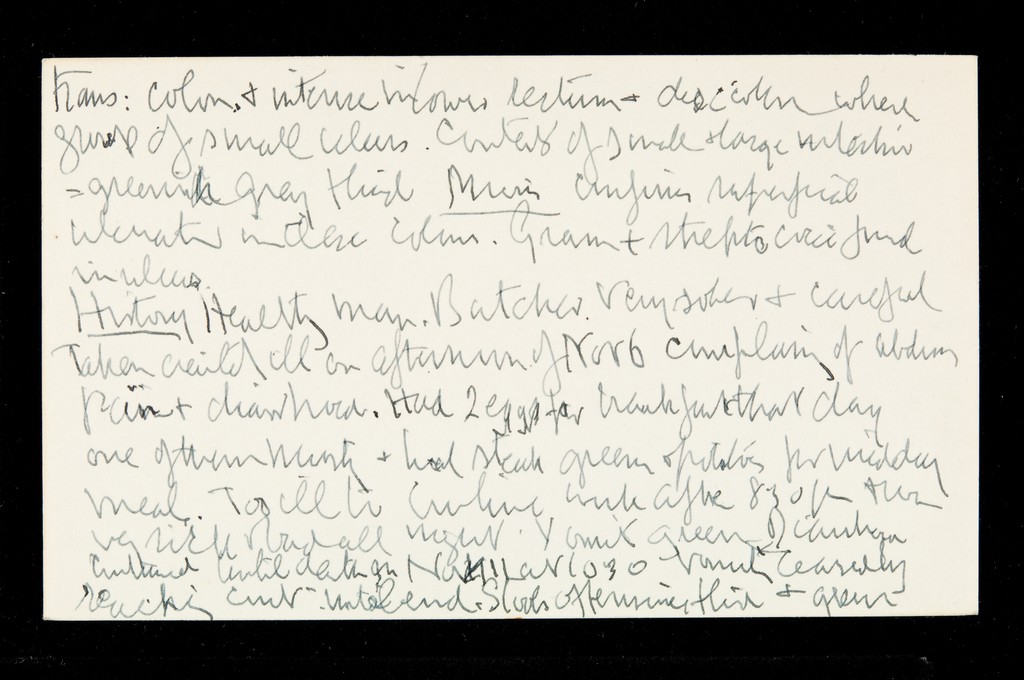 trans: colon. + intense in lower rectum + des: colon where
group of small ulcers. Contents of small + large intestine
= greenish grey fluid Micro confirms superficial
ulceration in these colon. Gram + streptococci found
in ulcers.
History Healthy man. Butcher. Very sober + careful
Taken ill on afternoon of Nov 6 complaining of abdom
pain + diarrhoea. Had 2 eggs for breakfast that day
one of them musty + had steak greens + potatoes for midday
meal. Too ill to continue work after 830 pm + was
very sick + bad all night. Vomit green Diarrhoea
continued until death on Nov 11 at 1030 Vomit ceased by
until end. Stools offensive, thin + green